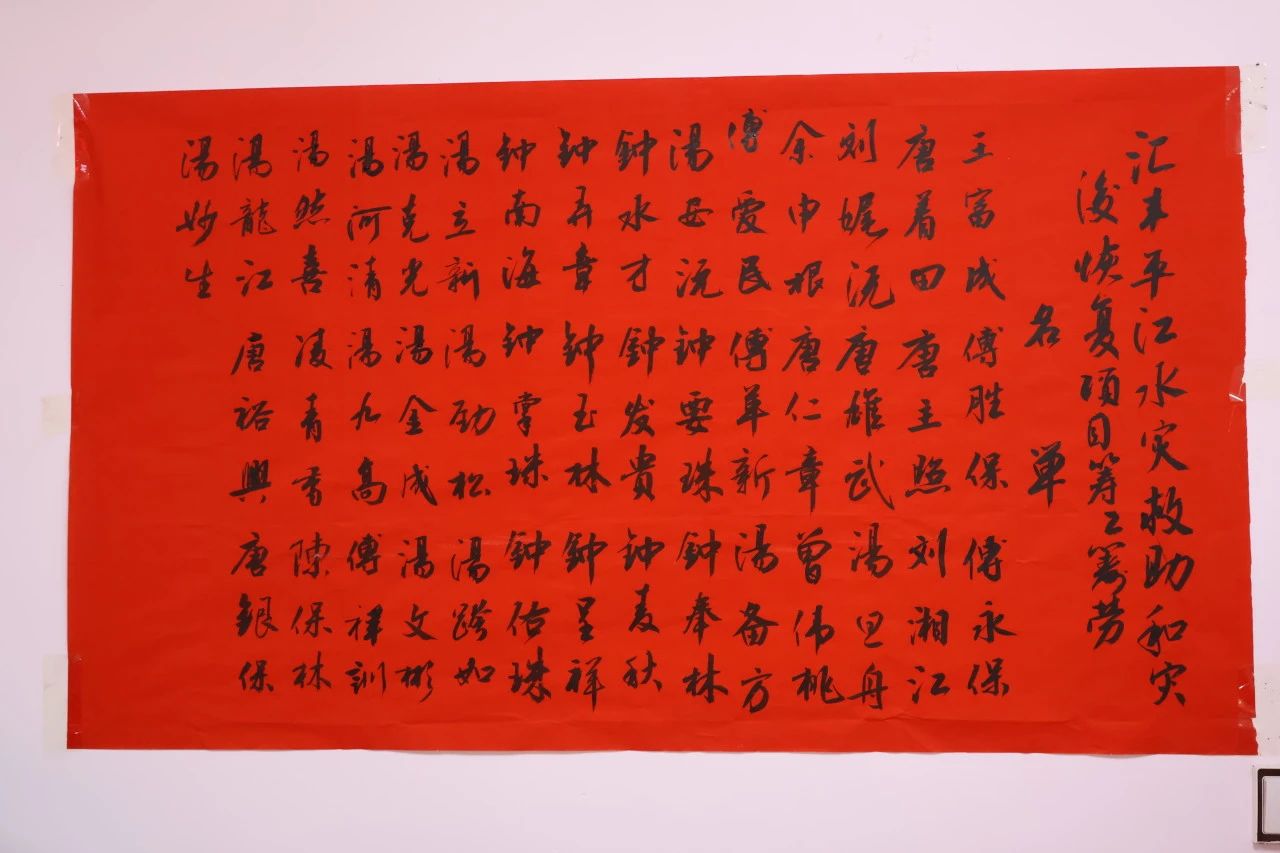 汇丰平江水灾救助和灾
后恢复项目筹工筹劳
名单
王富成 傅胜保 傅永保
唐着田 唐主照 刘湘江
刘娓沅 唐雄武 湯旦舟
余申根 唐仁章 曾伟桃
傅爱民 傅革新 湯备方
湯母沅 钟要珠 钟奉林
钟水才 鈡发贵 钟麦秋
钟弄章 钟玉林 钟呈祥
钟南海 钟掌珠 钟佑珠
湯立新 湯劲松 湯躋如
湯克光 湯金成 湯文彬
湯河清 湯九高 傅祥訓
湯然喜 凌青香 陳保林
湯龍江 唐裕興 唐銀保
湯妙生